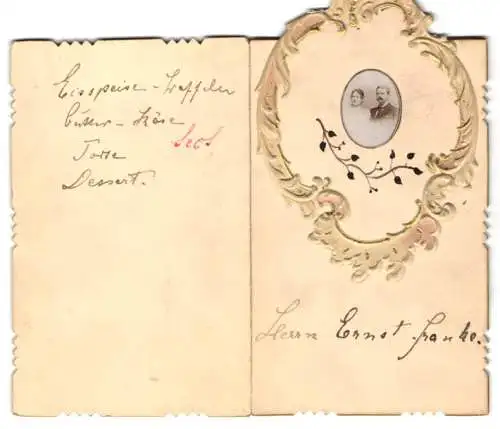 Eisspeise - Waffeln
Butter - Käse
Sect
Torte
Dessert.
Herrn Ernst Franke.